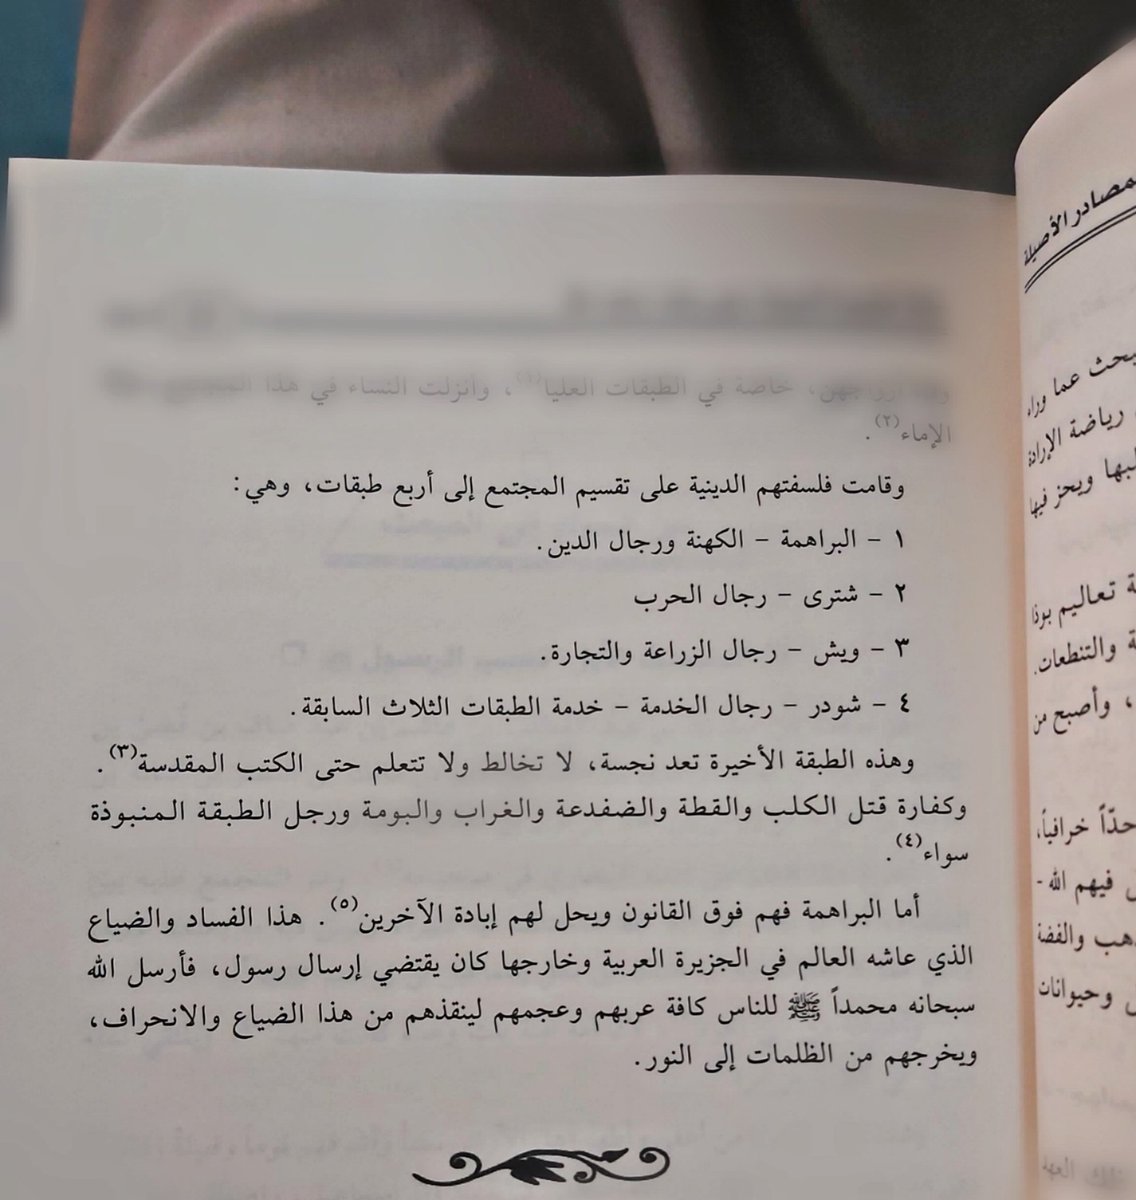 خاصة في الطبقات العليا(١)، وأنزلت النساء في هذا
الإماء(٢).
وقامت فلسفتهم الدينية على تقسيم المجتمع إلى أربع طبقات، وهي:
١ - البراهمة - الكهنة ورجال الدين.
٢ - شترى - رجال الحرب
٣ - ويش - رجال الزراعة والتجارة.
٤ - شودر - رجال الخدمة - خدمة الطبقات الثلاث السابقة.
وهذه الطبقة الأخيرة تعد نجسة، لا تخالط ولا تتعلم حتى الكتب المقدسة(٣).
وكفارة قتل الكلب والقطة والضفدعة والغراب والبومة ورجل الطبقة المنبوذة
سواء(٤).
أما البراهمة فهم فوق القانون ويحل لهم إبادة الآخرين(٥). هذا الفساد والضياع
الذي عاشه العالم في الجزيرة العربية وخارجها كان يقتضي إرسال رسول، فأرسل الله
سبحانه محمداً ﷺ للناس كافة عربهم وعجمهم لينقذهم من هذا الضياع والانحراف،
ويخرجهم من الظلمات إلى النور.
لمصادر الأصيلة
يبحث عما وراء
رياضة الإرادة
ويحز فيها
تعاليم بوذا
والتنطعات.
، وأصبح من
حدّاً خرافياً،
فيهم الله -
والفضة
وحيوانات